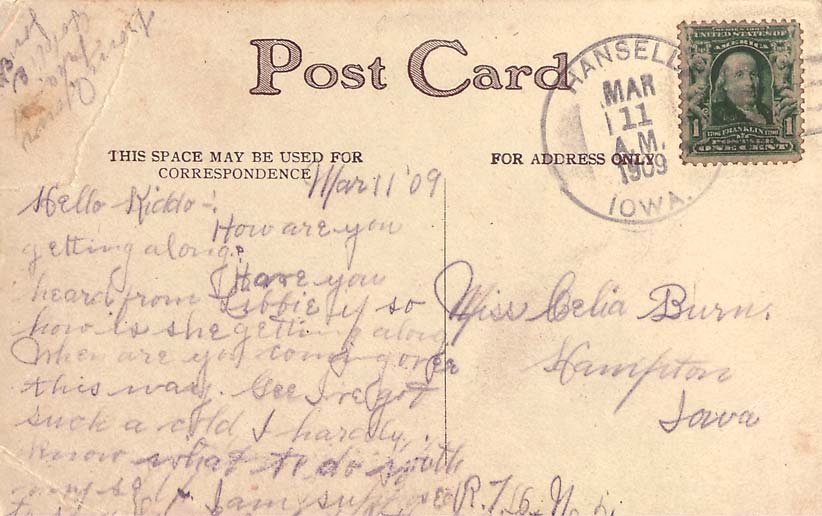 Post Card
THIS SPACE MAY BE USED FOR
CORRESPONDENCE
FOR ADDRESS ONLY
HANSELL
MAR
11
A.M.
1909
IOWA.
SERIES 1902
UNITED STATES OF
AMERICA
1 FRANKLIN 1
POSTAGE
ONE CENT
Mar 11 '09
Hello Kiddo -!
How are you
getting along?
Have you
heard from Libbie if so
how is she getting along
When are you coming over
this way. Gee I've got
such a cold I hardly
know what to do with
myself I am
Miss Celia Burn.
Hampton
Iowa